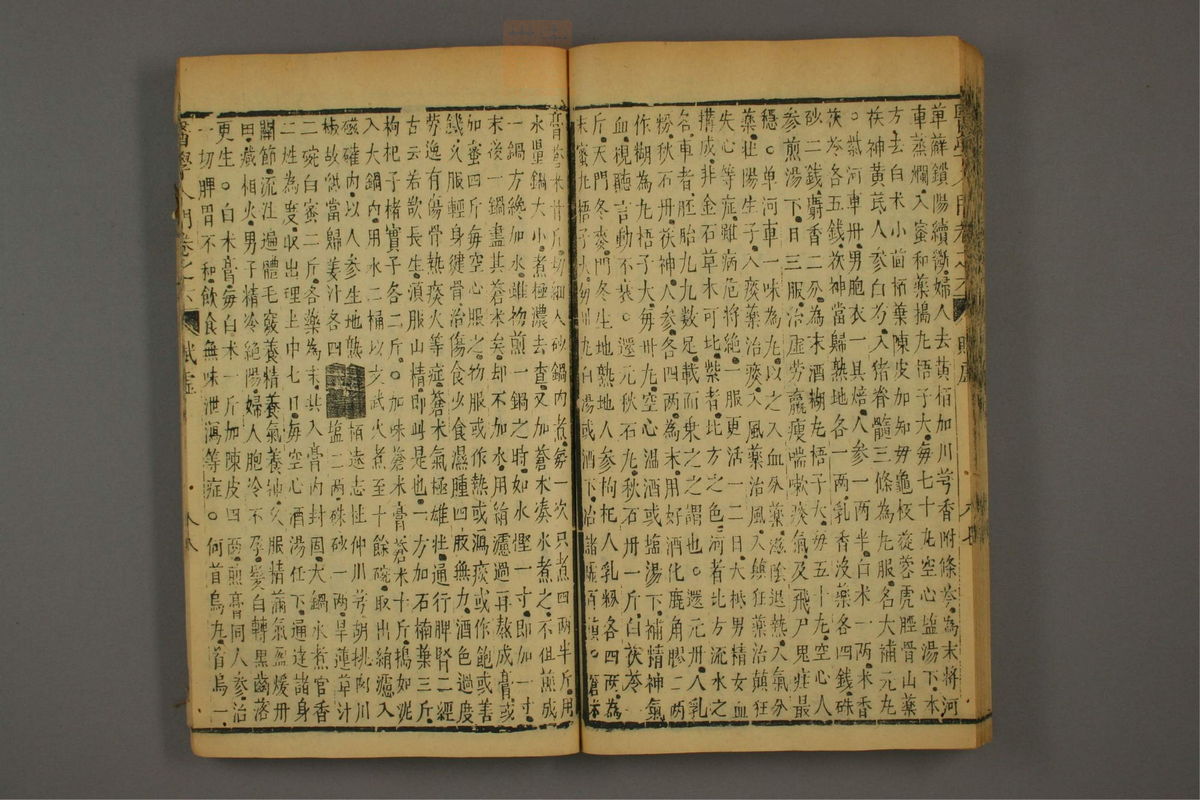 醫學入門卷之六 賬虛 六七
草蘚鎖陽續斷婦人去黃栢加川芎香附條芩為末將河
車蒸爛入蜜和藥搗丸梧子大每七十丸空心塩湯下本
方去白朮小茴栢葉陳皮加知母龜板蓯蓉虎脛骨山藥
茯神黃芪人參白芍入猪脊髓三條為丸服名大補元丸
○紫河車丹男胞衣一具焙人參一兩半白朮一兩米香
茯苓各五錢茯神當歸熟地各一兩乳香沒藥各四錢硃
砂二錢麝香二分為末酒糊丸梧子大每五十丸空心人
參煎湯下日三服治虛勞羸瘦喘嗽痰氣及飛尸鬼疰最
穩○單河車一味為丸以之入血分藥滋陰退熱入氣分
藥壯陽生子入痰藥治痰入風藥治風入癲狂藥治顛狂
失心等症雖病危將絕一服更活一二日大抵男精女血
搆成非金石草木可比紫者比方之色河者比方流水之
名車者胚胎九九數足載而乘之之謂也○還元丹人乳
粉秋石丹茯神人參各四兩為末用好酒化鹿角膠二兩
作糊為丸梧子大每卅丸空心温酒或塩湯下補精神氣
血視聽言動不衰○還元秋石丸秋石丹一斤白茯苓一
斤天門冬麥門冬生地熟地人參枸杞人乳粉各四兩為
末蜜丸梧子大每卅丸白湯或酒下治諸虛百損○蒼朮
膏蒼朮廿斤切細入砂鍋內煮每一次只煮四兩半斤用
水量鍋大小煮極濃去查又加蒼朮湊水煮之不但煎成
一鍋方纔加水雖物煎一鍋之時如水慳一寸即加一寸
末後一鍋盡其蒼朮矣却不加水用絹濾過再熬成膏或
如蜜四斤每空心服之物服或作熱或瀉痰或作飽或善
饑久服輕身健骨治傷食少食濕腫四肢無力酒色過度
勞逸有傷骨熱痰火等症蒼朮氣極雄壯通行脾腎二經
古云若欲長生湏服山精即此是也一方加石楠葉三斤
枸杞子楮實子各二斤○加味蒼朮膏蒼朮十斤搗如泥
入大鍋內用水二桶以文武火煮至十餘碗取出絹濾入
磁確內以人參生地熟栢遠志杜仲川芎胡桃肉川
椒故紙當歸薑汁各四塩二兩硃砂一兩旱蓮草汁
二碗白蜜二斤各藥為末共入膏內封固大鍋水煮官香
二炷為度取出埋土中七日每空心酒湯任下通達諸身
關節流注遍體毛竅養精養氣養神久服精滿氣盈煖丹
田藏相火男子精冷絕陽婦人胞冷不孕髮白轉黑齒落
更生○白朮膏每白朮一斤加陳皮四兩煎膏同人參治
一切脾胃不和飲食無味泄瀉等症○何首烏丸首烏一
醫學入門卷之六 賬虛 六八